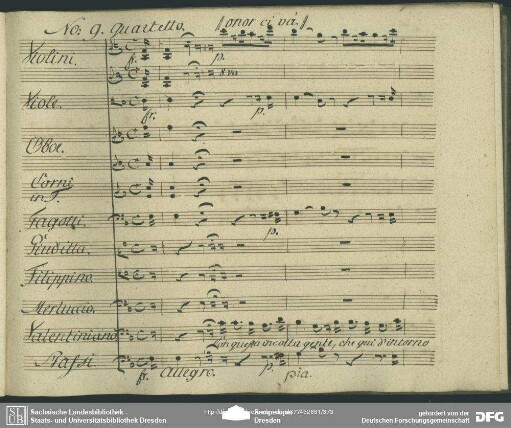 No: 9. Quartetto. // onor ci và. //
Violini.
fr. p.
Viole.
fr. p.
Oboe.
Corni
in F.
Fagotti.
p.
Giuditta.
Filippino.
Merluccio.
Valentiniano.
questa incolta gente, che qui d'intorno
Bassi
fr. Allegro. p. pia.
Sächsische Landesbibliothek
Staats- und Universitätsbibliothek Dresden
Dresden
gefördert von der
Deutschen Forschungsgemeinschaft
DFG